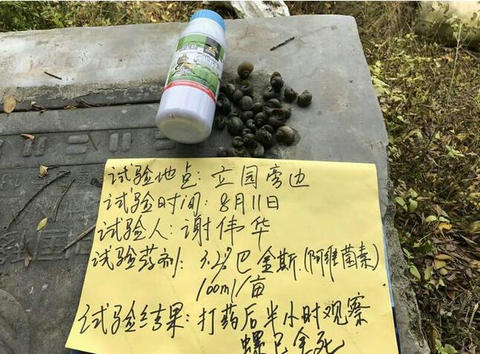 试验地点：立园旁边
试验时间：8月11日
试验人：谢伟华
试验药剂：3.2%巴金斯.(阿维菌素)
100ml/亩
试验结果：打药后半小时观察
螺已全死